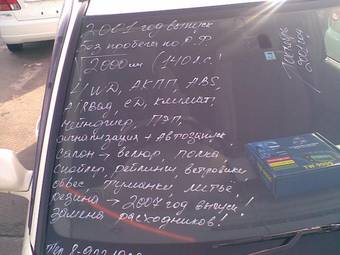 2001 год выпуск
Без пробега по РФ
2000см (140 л.с.!
4WD, АКПП, ABS,
AIRBag, CD, климат!
Чейнджер, ПЭП,
сигнализация + Автозапуск
Салон → велюр, полка,
спойлер, рейлинги, ветровики
обвес, туманки, литьё
резина → 2007 год выпуск!
замена расходников!